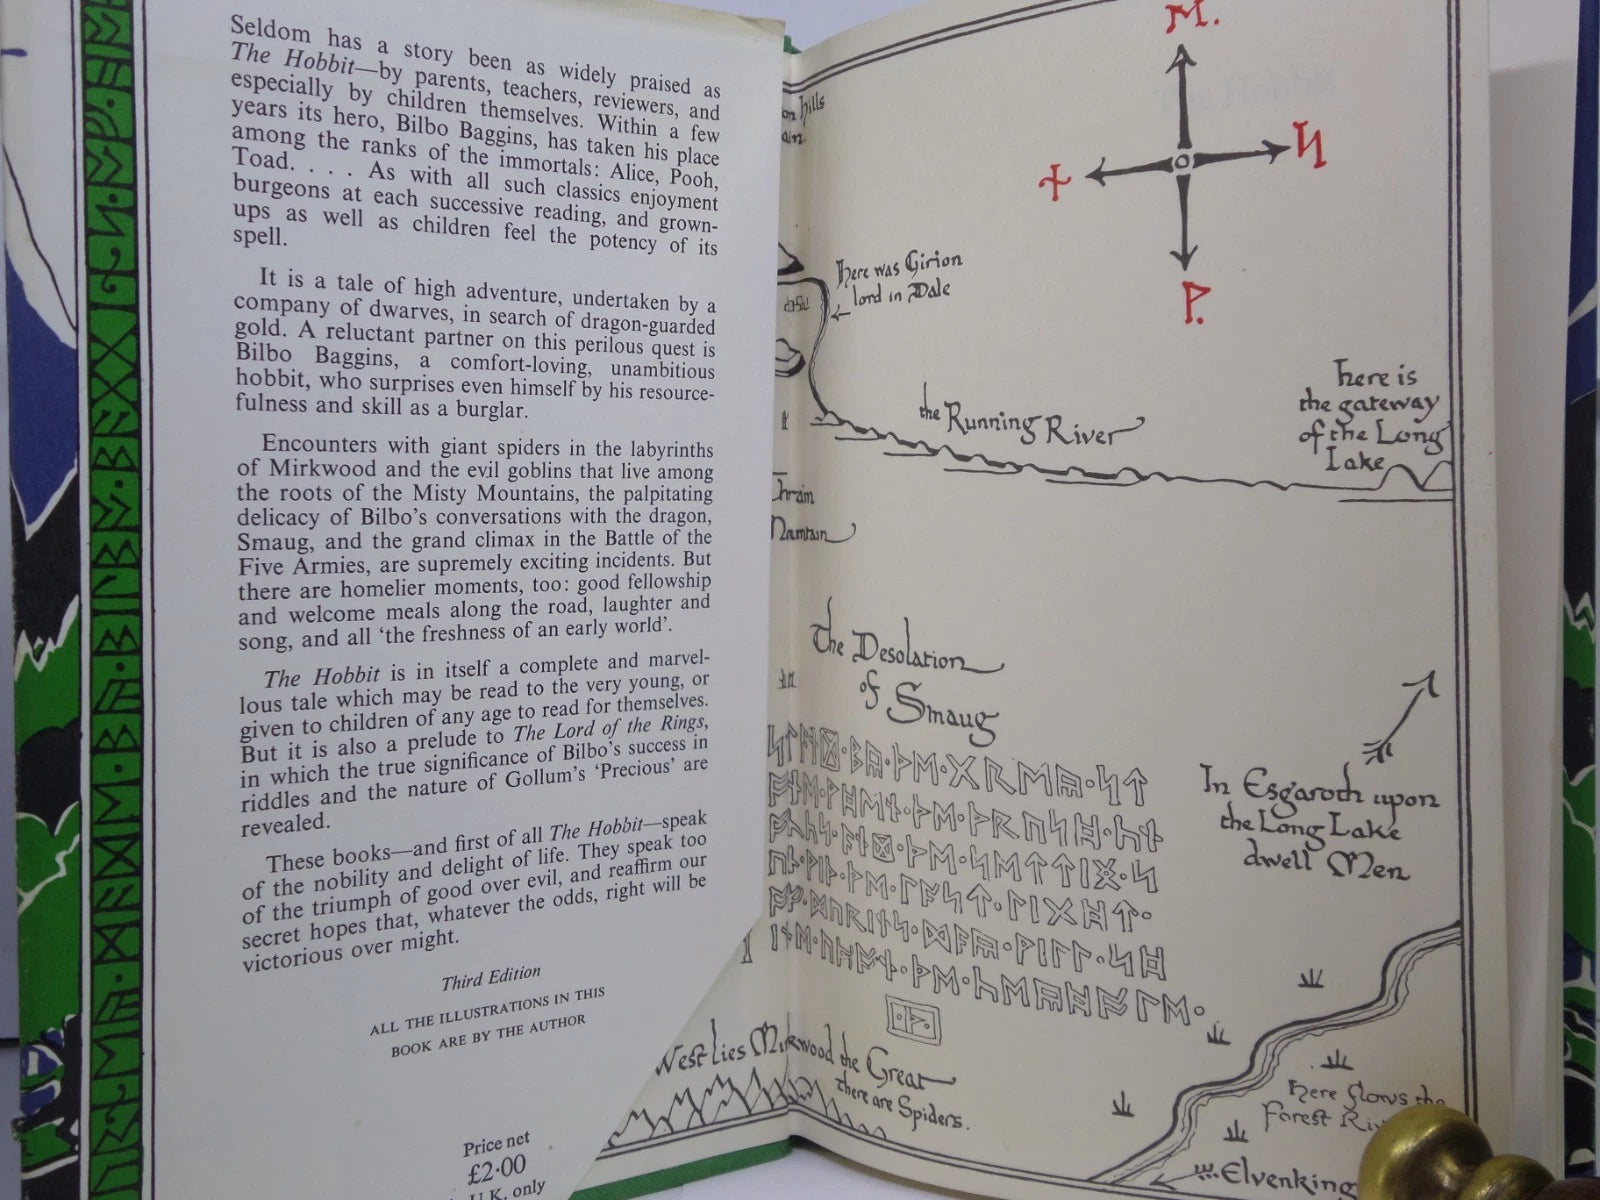 Seldom has a story been as widely praised as
The Hobbit—by parents, teachers, reviewers, and
especially by children themselves. Within a few
years its hero, Bilbo Baggins, has taken his place
among the ranks of the immortals: Alice, Pooh,
Toad. . . . As with all such classics enjoyment
burgeons at each successive reading, and grown-
ups as well as children feel the potency of its
spell.
It is a tale of high adventure, undertaken by a
company of dwarves, in search of dragon-guarded
gold. A reluctant partner on this perilous quest is
Bilbo Baggins, a comfort-loving, unambitious
hobbit, who surprises even himself by his resource-
fulness and skill as a burglar.
Encounters with giant spiders in the labyrinths
of Mirkwood and the evil goblins that live among
the roots of the Misty Mountains, the palpitating
delicacy of Bilbo's conversations with the dragon,
Smaug, and the grand climax in the Battle of the
Five Armies, are supremely exciting incidents. But
there are homelier moments, too: good fellowship
and welcome meals along the road, laughter and
song, and all 'the freshness of an early world'.
The Hobbit is in itself a complete and marvel-
lous tale which may be read to the very young, or
given to children of any age to read for themselves.
But it is also a prelude to The Lord of the Rings,
in which the true significance of Bilbo's success in
riddles and the nature of Gollum's 'Precious' are
revealed.
These books—and first of all The Hobbit—speak
of the nobility and delight of life. They speak too
of the triumph of good over evil, and reaffirm our
secret hopes that, whatever the odds, right will be
victorious over might.
Third Edition
ALL THE ILLUSTRATIONS IN THIS
BOOK ARE BY THE AUTHOR
Price net
£2·00
U.K. only
hills
ᛗ.
ᚾ
ᛋ
ᚹ.
Here was Girion
lord in Dale
the Running River
here is
the gateway
of the Long
Lake
The Desolation
of Smaug
ᛋᛏᚪᚾᛞ᛫ᛒᚣ᛫ᚦᛖ᛫ᚷᚱᛖᚣ᛫ᛋᛏ
ᚩᚾᛖ᛫ᚹᚻᛖᚾ᛫ᚦᛖ᛫ᚦᚱᚢᛋᚻ᛫ᚳᚾ
ᚩᚳᚳᛋ᛫ᚪᚾᛞ᛫ᚦᛖ᛫ᛋᛖᛏᛏᛁᛝ᛫ᛋ
ᚢᚾ᛫ᚹᛁᚦ᛫ᚦᛖ᛫ᛚᚪᛋᛏ᛫ᛚᛁᚷᚻᛏ᛫
ᚩᚠ᛫ᛞᚢᚱᛁᚾᛋ᛫ᛞᚪᚣ᛫ᚹᛁᛚᛚ᛫ᛋᚻ
ᛁᚾᛖ᛫ᚢᛈᚩᚾ᛫ᚦᛖ᛫ᚳᛖᚣᚻᚩᛚᛖ᛫
᛫ᚦ᛫
In Esgaroth upon
the Long Lake
dwell Men
West lies Mirkwood the Great
there are Spiders.
Here flows the
Forest
Elvenking